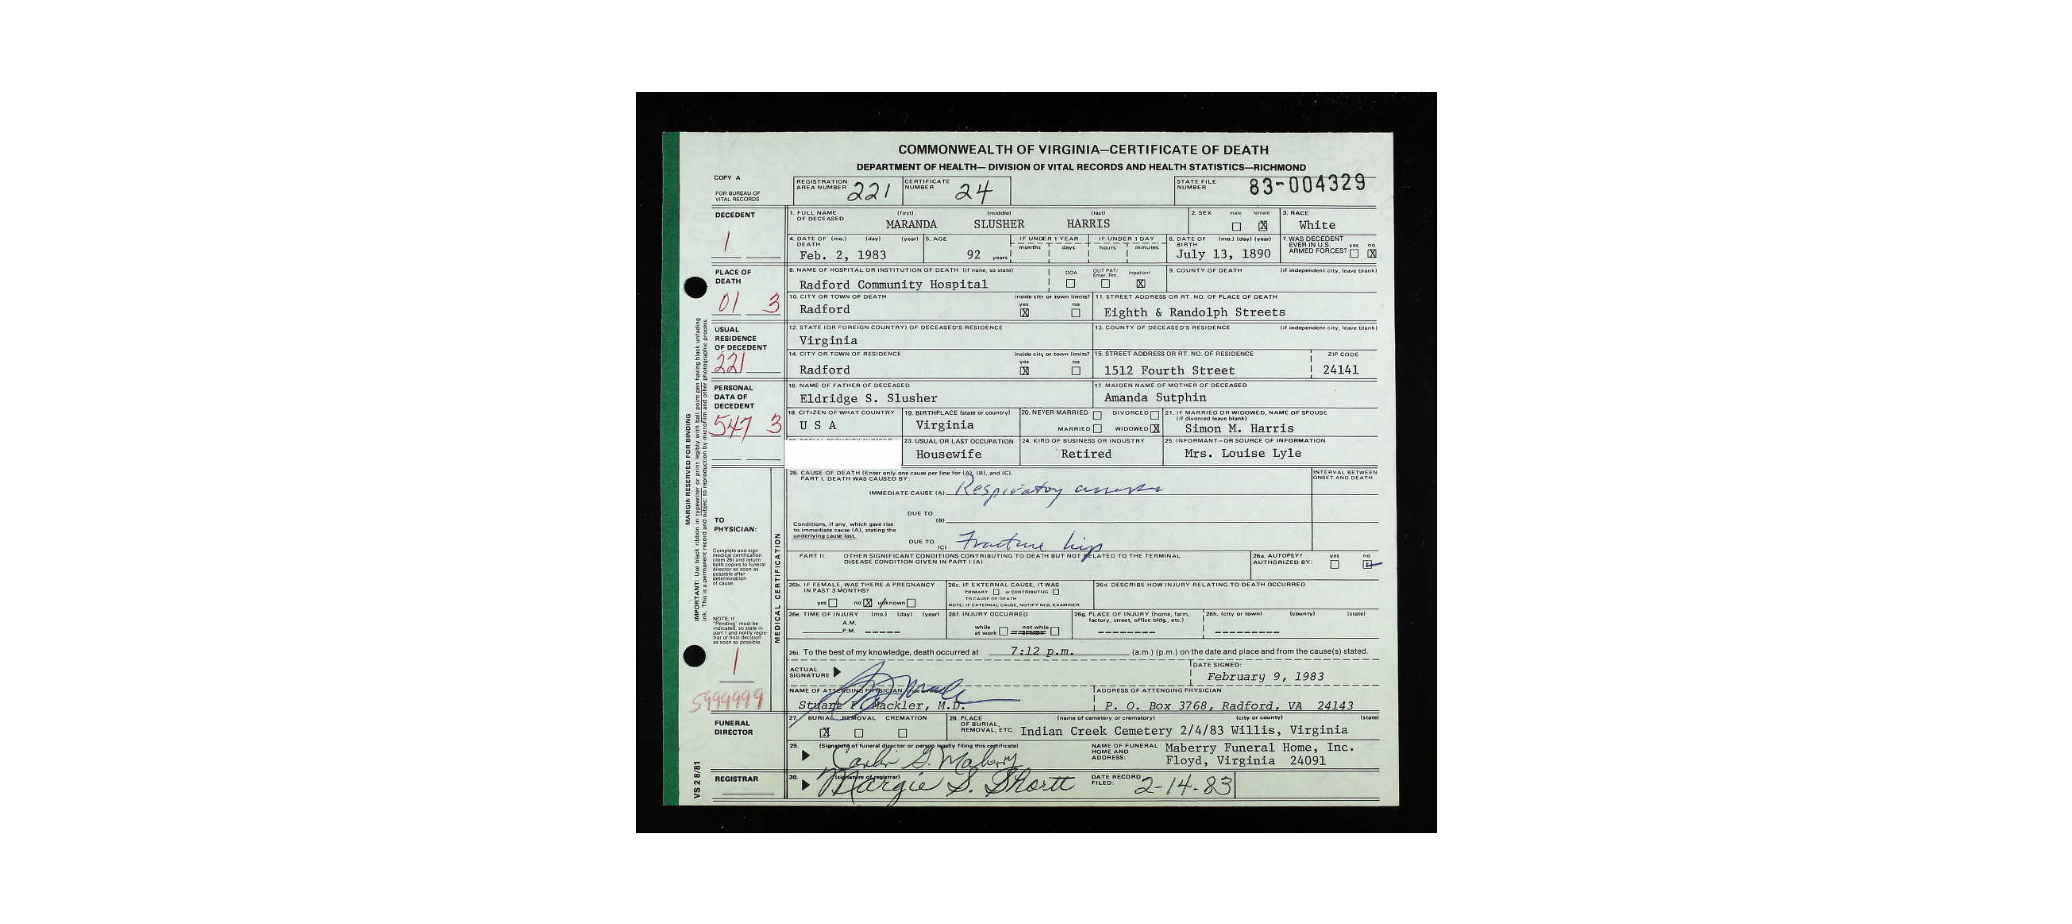 COMMONWEALTH OF VIRGINIA—CERTIFICATE OF DEATH
DEPARTMENT OF HEALTH— DIVISION OF VITAL RECORDS AND HEALTH STATISTICS—RICHMOND
COPY A
FOR BUREAU OF VITAL RECORDS
REGISTRATION AREA NUMBER 221 CERTIFICATE NUMBER 24 STATE FILE NUMBER 83-004329
DECEDENT
1
1. FULL NAME OF DECEASED (first) (middle) (last) 2. SEX male female 3. RACE
MARANDA SLUSHER HARRIS X White
4. DATE OF DEATH (mo.) (day) (year) 5. AGE IF UNDER 1 YEAR months days IF UNDER 1 DAY hours minutes 6. DATE OF BIRTH (mo.) (day) (year) 7. WAS DECEDENT EVER IN U.S. ARMED FORCES? yes no
Feb. 2, 1983 92 years July 13, 1890 X
PLACE OF DEATH
01 3
8. NAME OF HOSPITAL OR INSTITUTION OF DEATH (if none, so state) DOA OUT PAT/ Emer. Rm. Inpatient 9. COUNTY OF DEATH (if independent city, leave blank)
Radford Community Hospital X
10. CITY OR TOWN OF DEATH inside city or town limits? yes no 11. STREET ADDRESS OR RT. NO. OF PLACE OF DEATH
Radford X Eighth & Randolph Streets
USUAL RESIDENCE OF DECEDENT
221
12. STATE (OR FOREIGN COUNTRY) OF DECEASED'S RESIDENCE 13. COUNTY OF DECEASED'S RESIDENCE (if independent city, leave blank)
Virginia
14. CITY OR TOWN OF RESIDENCE inside city or town limits? yes no 15. STREET ADDRESS OR RT. NO. OF RESIDENCE ZIP CODE
Radford X 1512 Fourth Street 24141
PERSONAL DATA OF DECEDENT
547 3
16. NAME OF FATHER OF DECEASED 17. MAIDEN NAME OF MOTHER OF DECEASED
Eldridge S. Slusher Amanda Sutphin
18. CITIZEN OF WHAT COUNTRY 19. BIRTHPLACE (state or country) 20. NEVER MARRIED DIVORCED 21. IF MARRIED OR WIDOWED, NAME OF SPOUSE (if divorced leave blank)
U S A Virginia MARRIED WIDOWED X Simon M. Harris
23. USUAL OR LAST OCCUPATION 24. KIND OF BUSINESS OR INDUSTRY 25. INFORMANT—OR SOURCE OF INFORMATION
Housewife Retired Mrs. Louise Lyle
MARGIN RESERVED FOR BINDING
IMPORTANT: Use black ribbon in typewriter or print legibly with ball point pen having black unfading ink. This is a permanent record and subject to reproduction by microfilm and other photographic process.
MEDICAL CERTIFICATION
TO PHYSICIAN:
Complete and sign medical certification (item 26) and return both copies to funeral director as soon as possible after determination of cause.
NOTE: If "Pending" must be indicated, so state in part I and notify registrar of final decision as soon as possible.
1
5999999
26. CAUSE OF DEATH (Enter only one cause per line for (A), (B), and (C). INTERVAL BETWEEN ONSET AND DEATH
PART I. DEATH WAS CAUSED BY:
IMMEDIATE CAUSE (A) Respiratory arrest
DUE TO (B)
Conditions, if any, which gave rise to immediate cause (A), stating the underlying cause last.
DUE TO (C) Fracture hip
PART II. OTHER SIGNIFICANT CONDITIONS CONTRIBUTING TO DEATH BUT NOT RELATED TO THE TERMINAL DISEASE CONDITION GIVEN IN PART I (A) 26a. AUTOPSY? AUTHORIZED BY: yes no
26b. IF FEMALE, WAS THERE A PREGNANCY IN PAST 3 MONTHS? 26c. IF EXTERNAL CAUSE, IT WAS 26d. DESCRIBE HOW INJURY RELATING TO DEATH OCCURRED
yes no X unknown PRIMARY or CONTRIBUTING TO CAUSE OF DEATH
NOTE: IF EXTERNAL CAUSE, NOTIFY MED. EXAMINER
26e. TIME OF INJURY (mo.) (day) (year) 26f. INJURY OCCURRED 26g. PLACE OF INJURY (home, farm, factory, street, office bldg., etc.) 26h. (city or town) (county) (state)
A.M. P.M. ----- while at work not while --------- ----------
26i. To the best of my knowledge, death occurred at 7:12 p.m. (a.m.) (p.m.) on the date and place and from the cause(s) stated.
ACTUAL SIGNATURE DATE SIGNED:
February 9, 1983
NAME OF ATTENDING PHYSICIAN ADDRESS OF ATTENDING PHYSICIAN
Stuart F. Mackler, M.D. P. O. Box 3768, Radford, VA 24143
FUNERAL DIRECTOR
27. BURIAL REMOVAL CREMATION 28. PLACE OF BURIAL, REMOVAL, ETC. (name of cemetery or crematory) (city or county) (state)
X Indian Creek Cemetery 2/4/83 Willis, Virginia
29. (Signature of funeral director or person legally filing this certificate) NAME OF FUNERAL HOME AND ADDRESS: Maberry Funeral Home, Inc.
Floyd, Virginia 24091
REGISTRAR
30. (signature of registrar) Margie S. Shortt DATE RECORD FILED: 2-14-83
VS 2 8/81